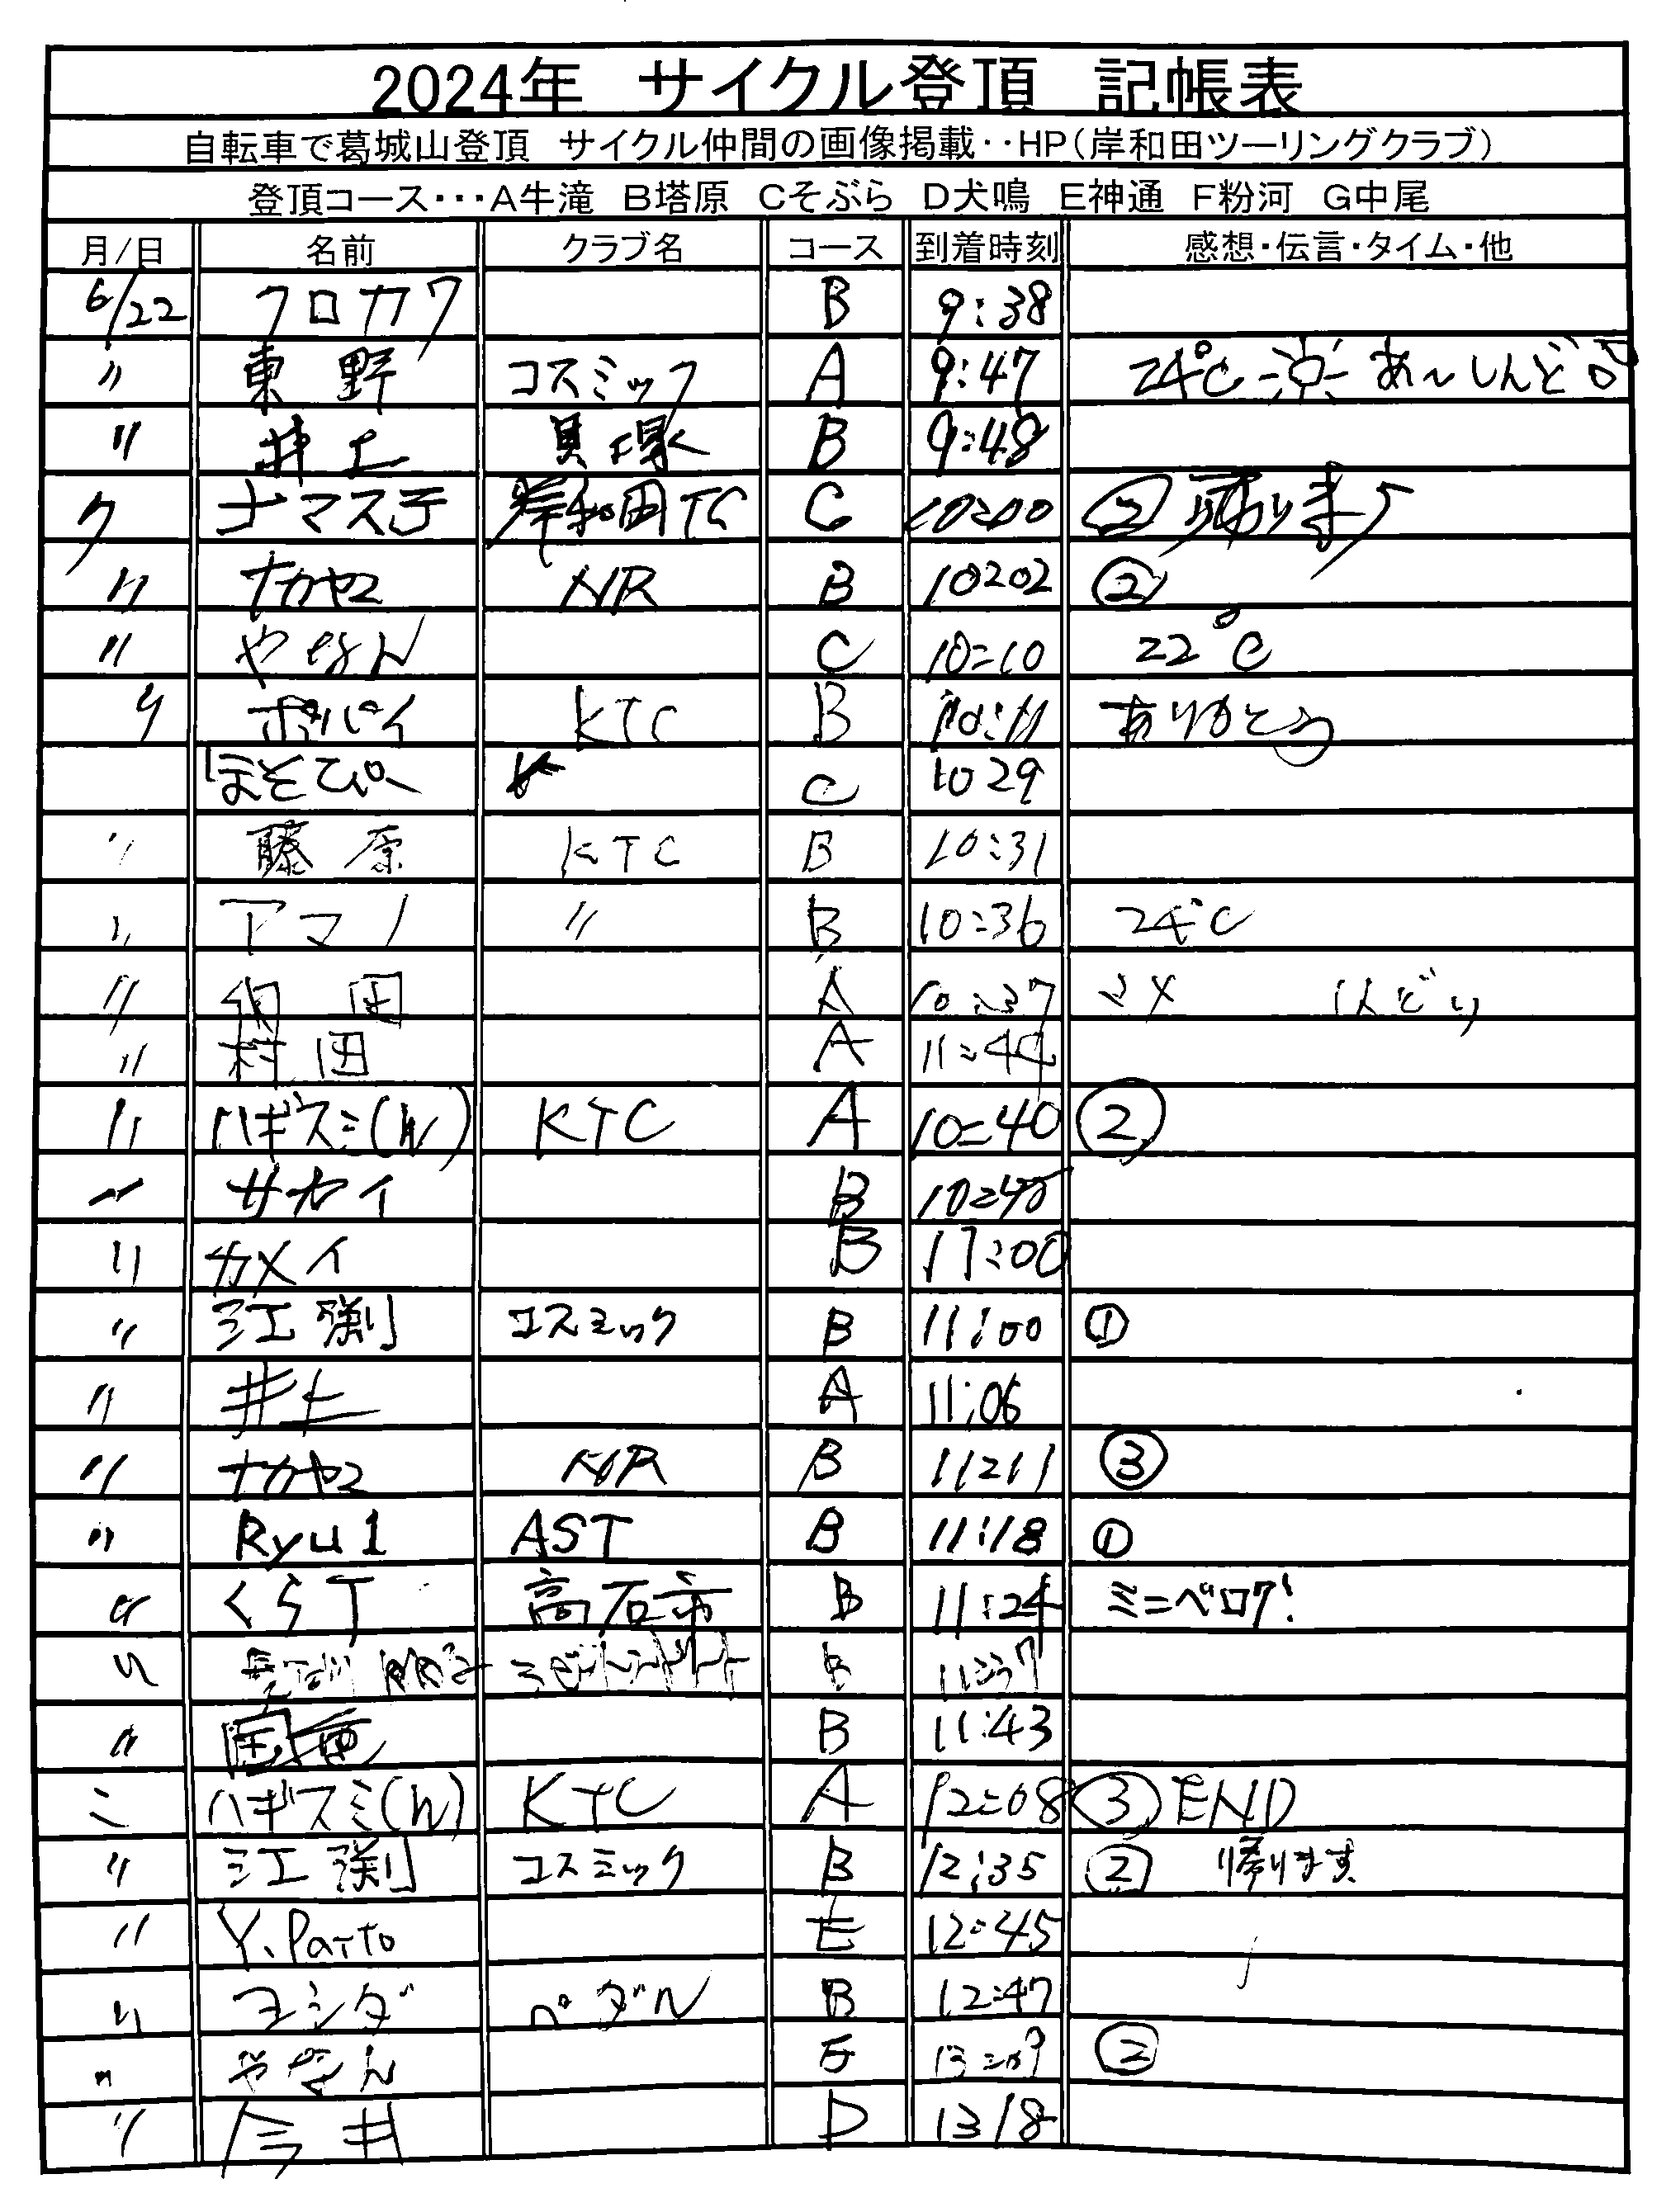 2024年 サイクル登頂 記帳表
自転車で葛城山登頂 サイクル仲間の画像掲載‥HP(岸和田ツーリングクラブ)
登頂コース･･･A牛滝 B塔原 Cそぶら D犬鳴 E神通 F粉河 G中尾
月/日 名前 クラブ名 コース 到着時刻 感想・伝言・タイム・他
6/22 クロカワ B 9:38
〃 東野 コスミック A 9:47 24℃ 涼 あ〜しんど
〃 井上 貝塚 B 9:48
〃 ナマス子 岸和田TC C 10:00 ②
〃 ナカヤマ NR B 10:02 ②
〃 C 10:10 22℃
〃 ポパイ KTC B 10:11 ありがとう
ほそぴー C 10 29
〃 藤原 KTC B 10:31
〃 アマノ 〃 B 10:36 24℃
〃 田 A 10:37
〃 村田 A 11:44
〃 ハギスミ(h) KTC A 10:40 ②
〃 サカイ B 10:45
〃 カメイ B 11:00
〃 江 コスミック B 11:00 ①
〃 井上 A 11:06
〃 ナカヤマ NR B 11:11 ③
〃 Ryu1 AST B 11:18 ①
〃 くらT 高石市 B 11:24 ミニベロワ!
〃 11:37
〃 B 11:43
〃 ハギスミ(h) KTC A 12:08 ③END
〃 江 コスミック B 12:35 ② 帰ります
〃 Y.Parto E 12:45
〃 ヨシダ ペダル B 12:47
〃 やせん E ②
〃 今井 D 13 18